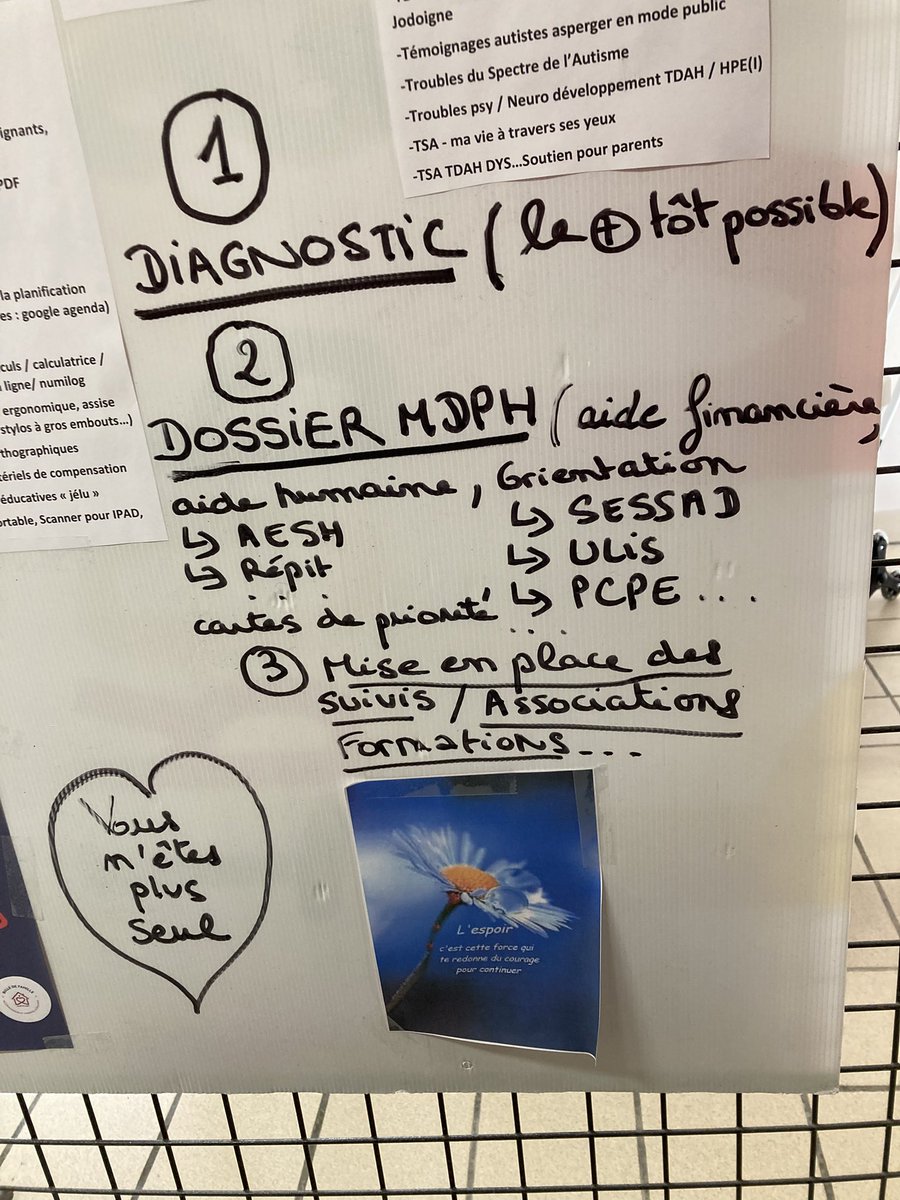 Jodoigne
-Témoignages autistes asperger en mode public
-Troubles du Spectre de l'Autisme
-Troubles psy / Neuro développement TDAH / HPE(I)
-TSA - ma vie à travers ses yeux
-TSA TDAH DYS...Soutien pour parents
ignants,
PDF
la planification
es : google agenda)
culs / calculatrice /
ligne/ numilog
ergonomique, assise
stylos à gros embouts...)
thographiques
tériels de compensation
éducatives « jélu »
ortable, Scanner pour IPAD,
1
DIAGNOSTIC (le + tôt possible)
2
DOSSIER MDPH (aide financière,
aide humaine, Orientation
↳ AESH
↳ Répit
↳ SESSAD
↳ ULIS
↳ PCPE ...
cartes de priorité ...
3 Mise en place des
suivis / Associations
Formations...
Vous
n'êtes
plus
seul
L'espoir
c'est cette force qui
te redonne du courage
pour continuer